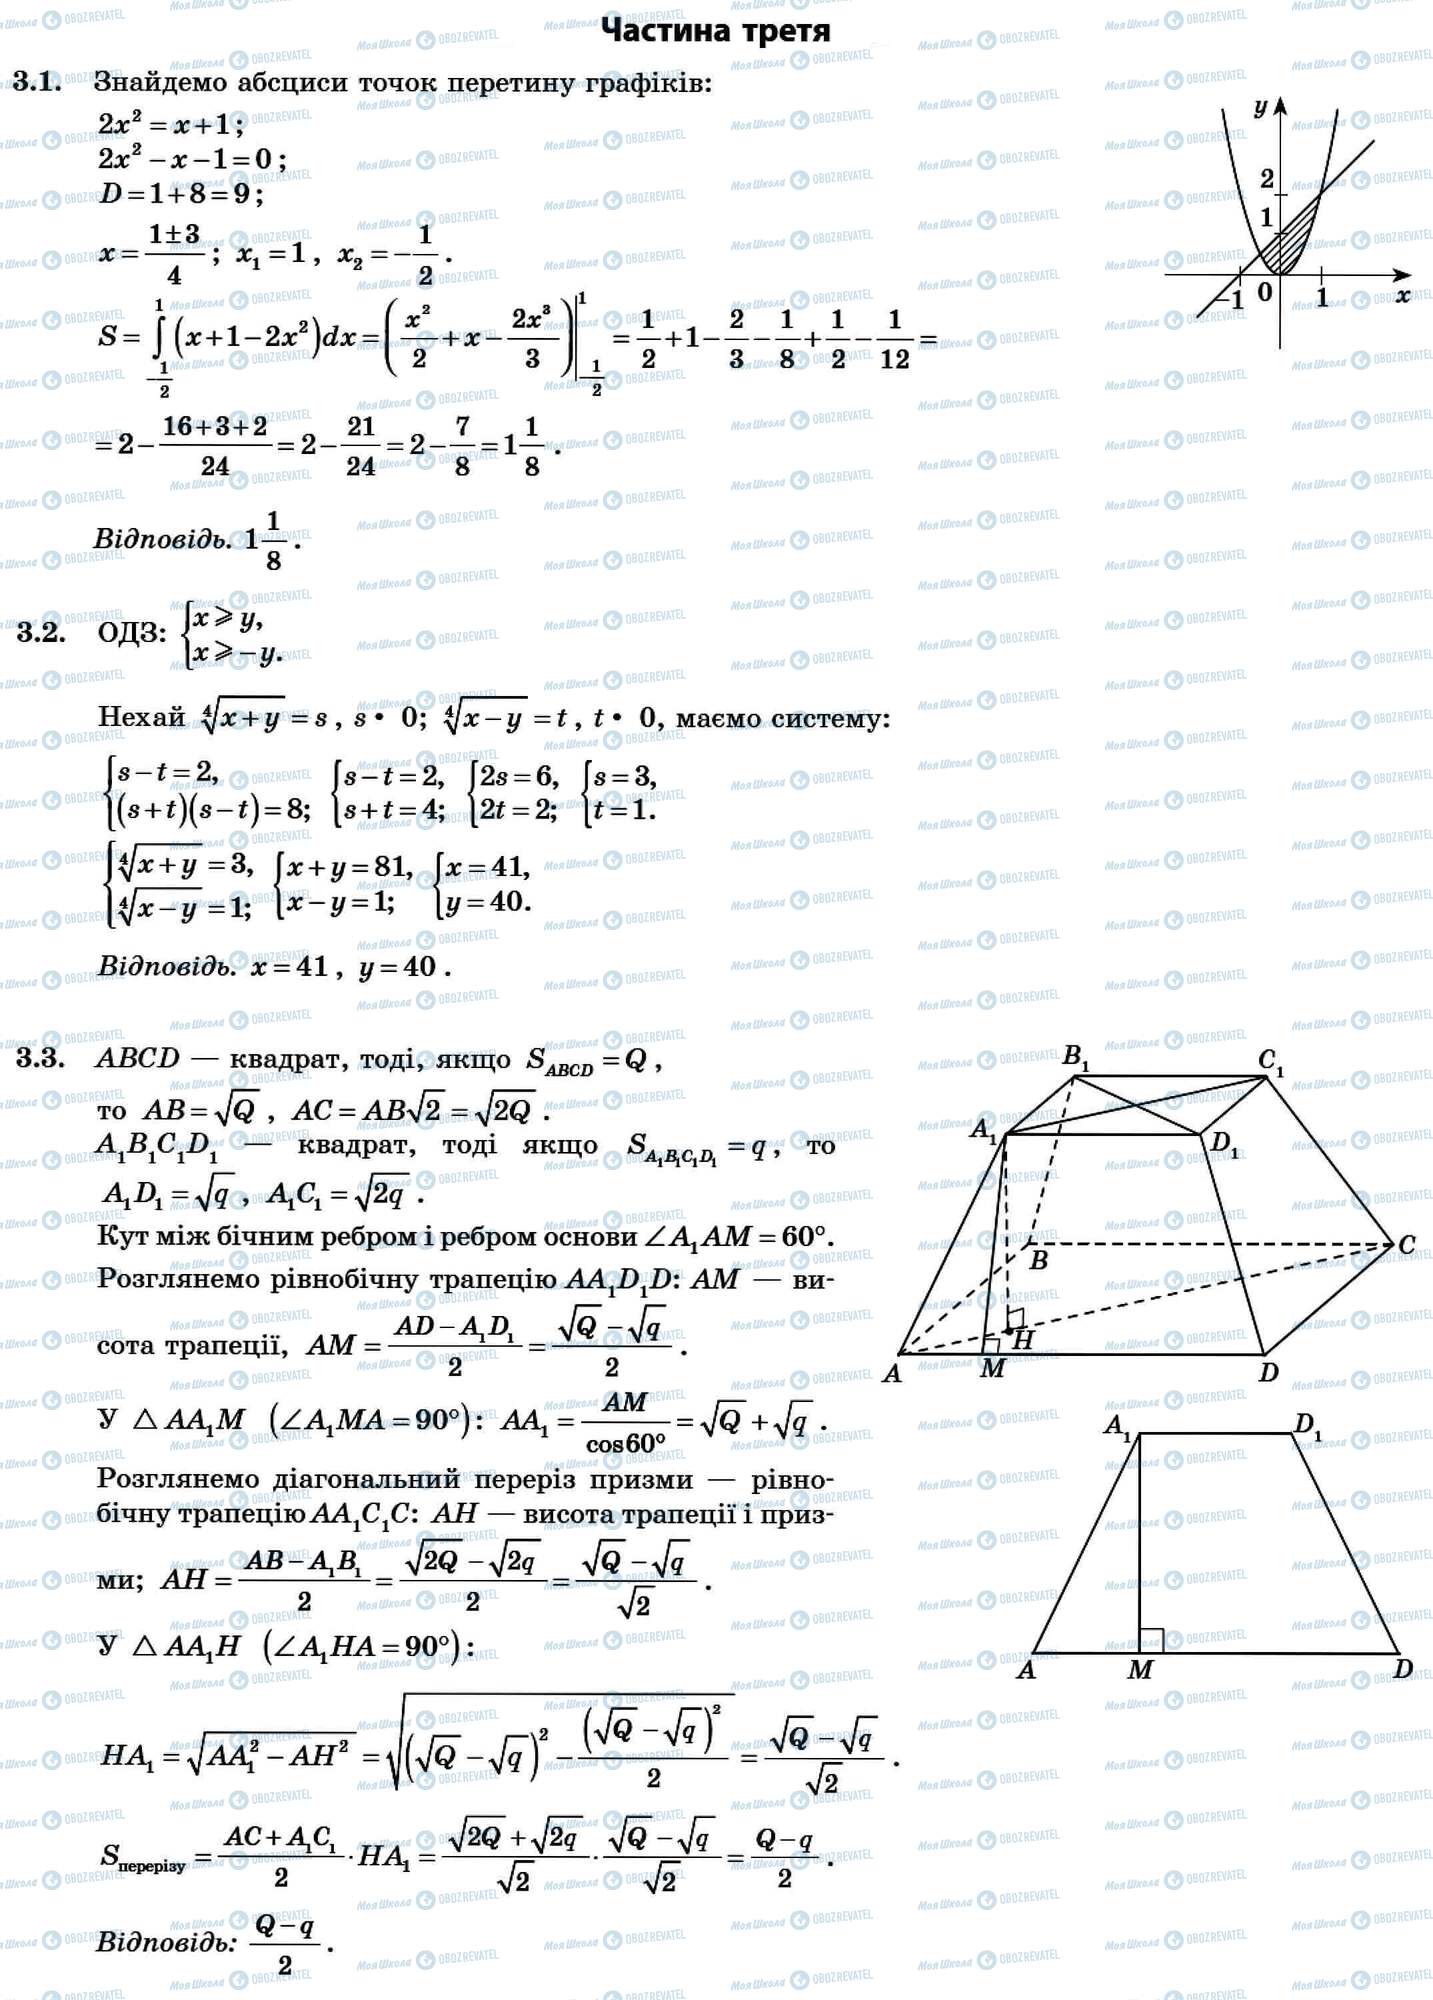 Частина третя
3.1. Знайдемо абсциси точок перетину графіків:
2x² = x + 1;
2x² − x − 1 = 0;
D = 1 + 8 = 9;
x = (1 ± 3)/4; x₁ = 1, x₂ = −1/2.
S = ∫_{−1/2}^{1} (x + 1 − 2x²)dx = (x²/2 + x − 2x³/3)|_{−1/2}^{1} = 1/2 + 1 − 2/3 − 1/8 + 1/2 − 1/12 =
= 2 − (16 + 3 + 2)/24 = 2 − 21/24 = 2 − 7/8 = 1 1/8.
Відповідь. 1 1/8.
y
2
1
−1
0
1
x
3.2. ОДЗ: { x ⩾ y, x ⩾ −y.
Нехай ⁴√(x + y) = s, s • 0; ⁴√(x − y) = t, t • 0, маємо систему:
{ s − t = 2, (s + t)(s − t) = 8; { s − t = 2, s + t = 4; { 2s = 6, 2t = 2; { s = 3, t = 1.
{ ⁴√(x + y) = 3, ⁴√(x − y) = 1; { x + y = 81, x − y = 1; { x = 41, y = 40.
Відповідь. x = 41, y = 40.
3.3. ABCD — квадрат, тоді, якщо S_ABCD = Q,
то AB = √Q, AC = AB√2 = √(2Q).
A₁B₁C₁D₁ — квадрат, тоді якщо S_A₁B₁C₁D₁ = q, то
A₁D₁ = √q, A₁C₁ = √(2q).
Кут між бічним ребром і ребром основи ∠A₁AM = 60°.
Розглянемо рівнобічну трапецію AA₁D₁D: AM — ви-
сота трапеції, AM = (AD − A₁D₁)/2 = (√Q − √q)/2.
У △AA₁M (∠A₁MA = 90°): AA₁ = AM/cos60° = √Q + √q.
Розглянемо діагональний переріз призми — рівно-
бічну трапецію AA₁C₁C: AH — висота трапеції і приз-
ми; AH = (AB − A₁B₁)/2 = (√(2Q) − √(2q))/2 = (√Q − √q)/√2.
У △AA₁H (∠A₁HA = 90°):
HA₁ = √(AA₁² − AH²) = √((√Q − √q)² − (√Q − √q)²/2) = (√Q − √q)/√2.
S_перерізу = (AC + A₁C₁)/2 · HA₁ = (√(2Q) + √(2q))/√2 · (√Q − √q)/√2 = (Q − q)/2.
Відповідь: (Q − q)/2.
B₁
C₁
A₁
D₁
B
C
H
A
M
D
A₁
D₁
A
M
D